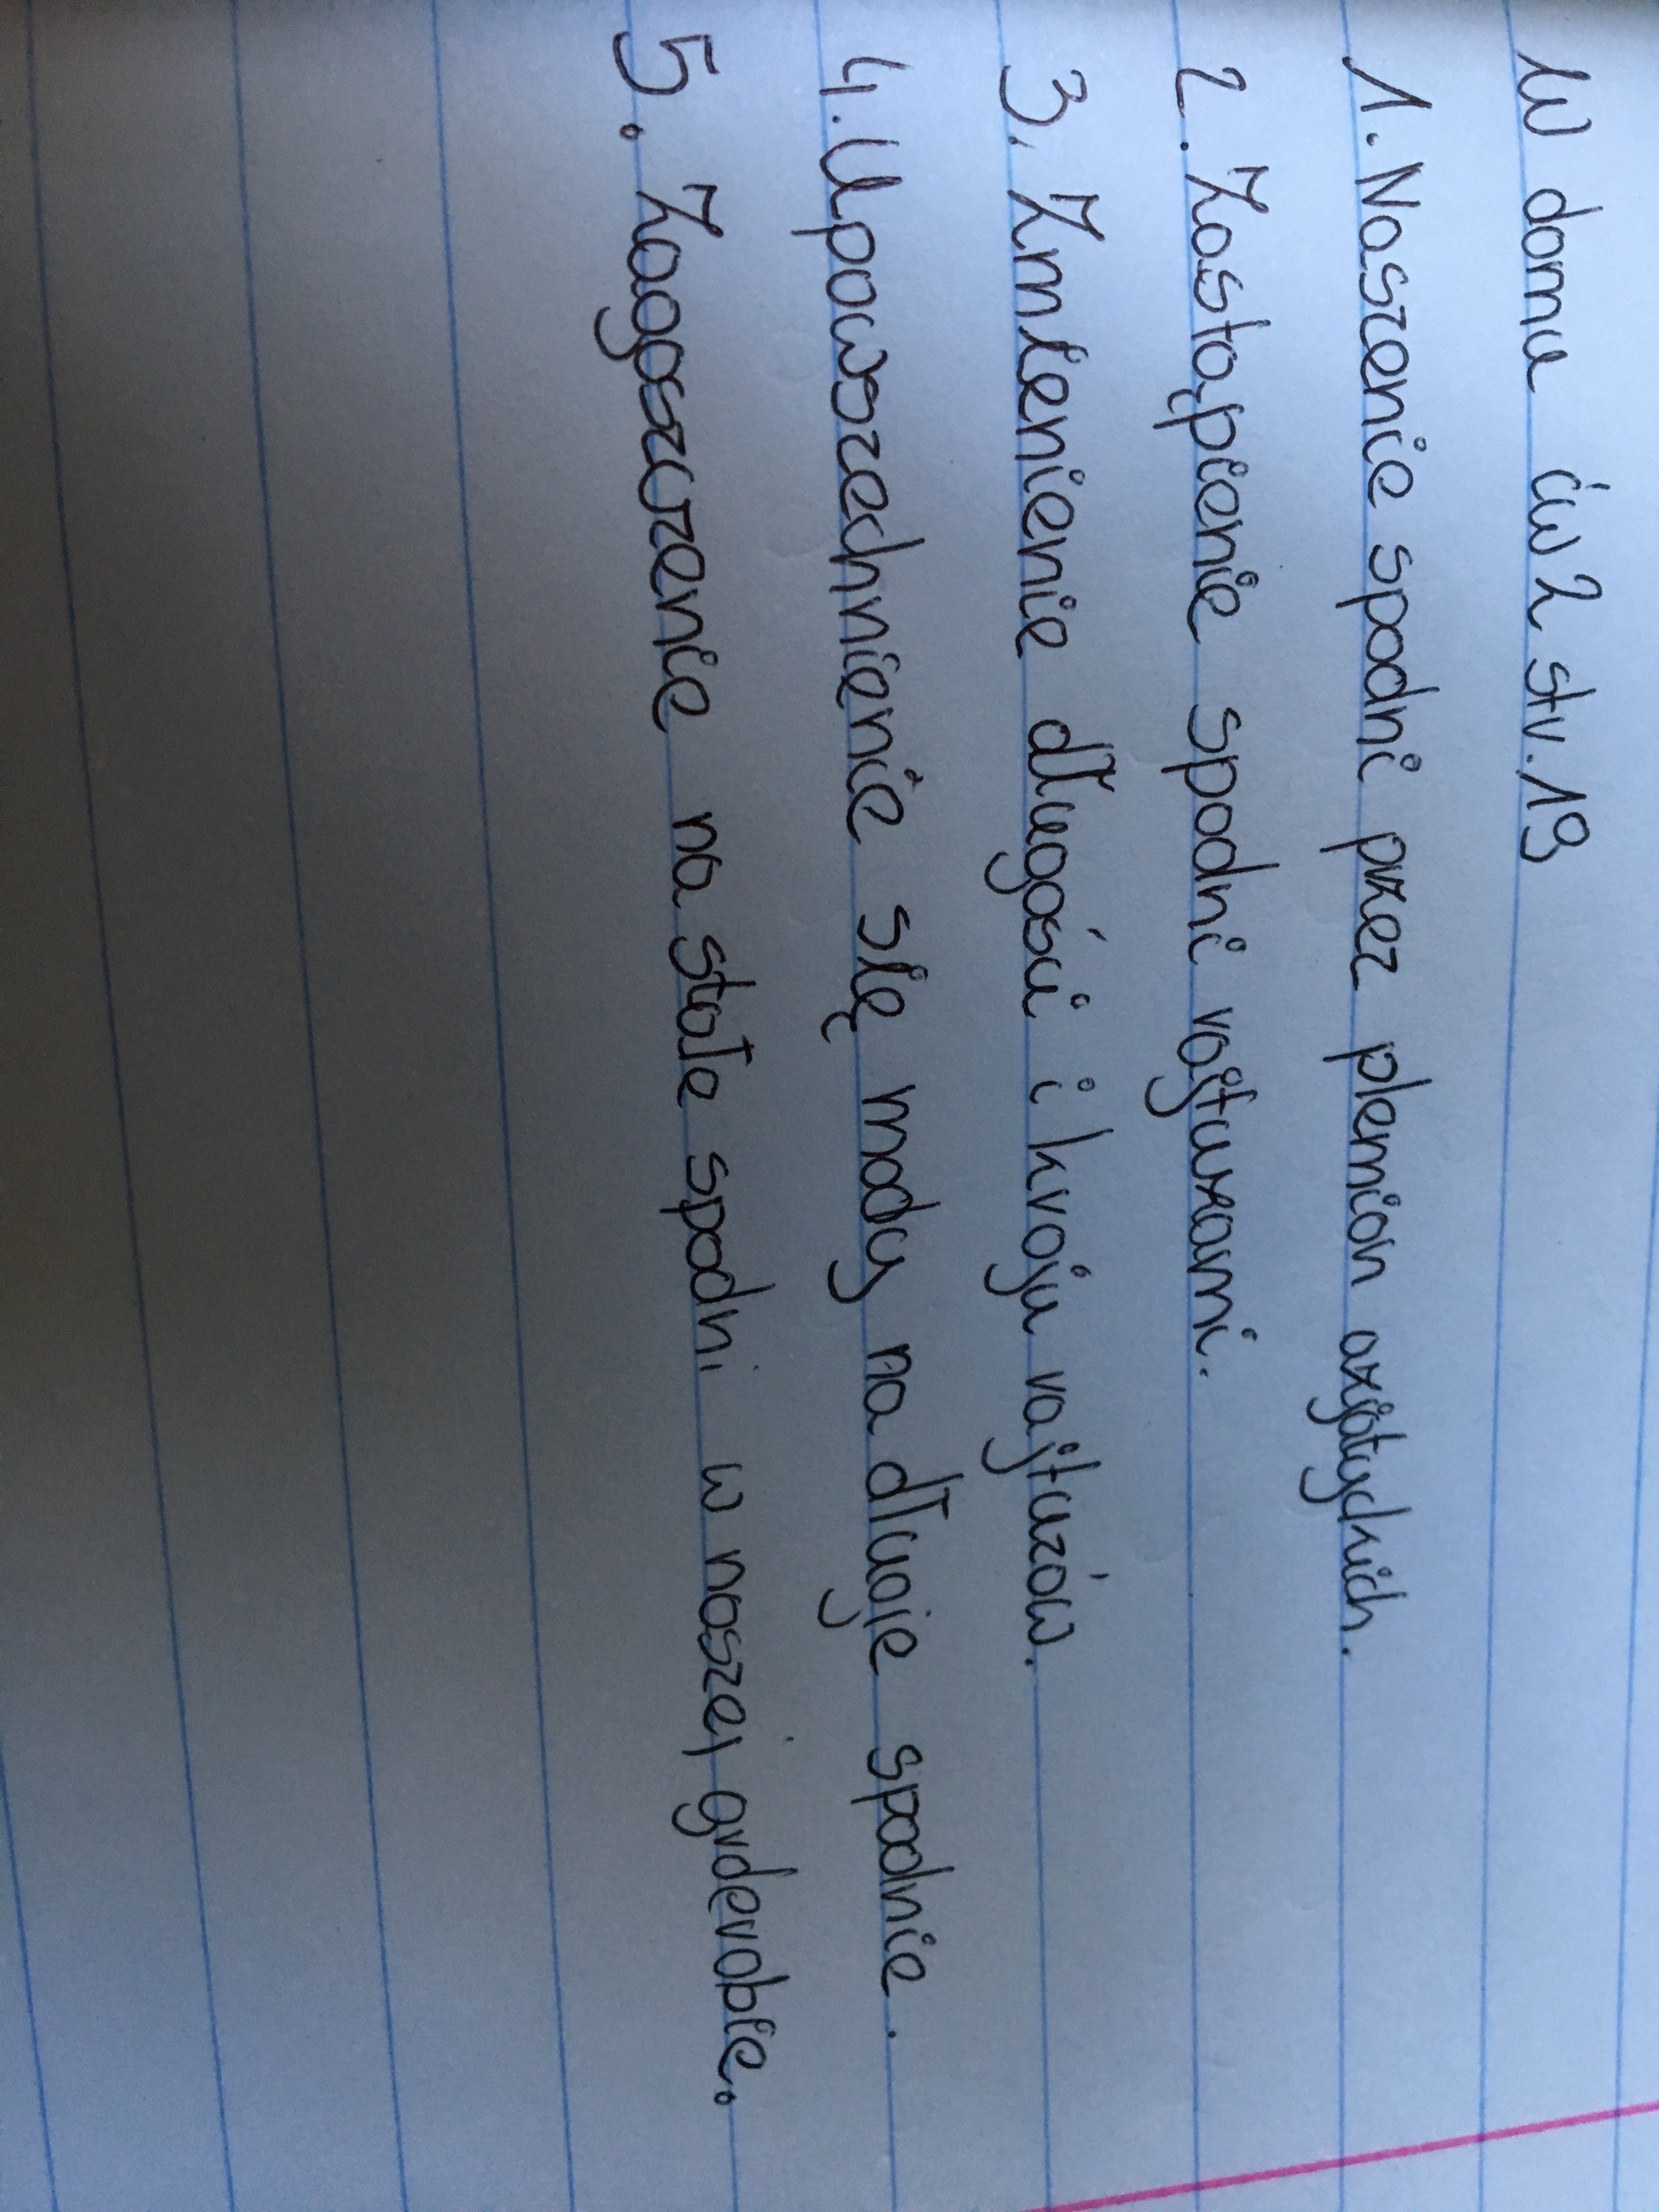 W domu ćw 2 str. 19
1. Noszenie spodni przez plemion azjatyckich.
2. Zastąpienie spodni rajtuzami.
3. Zmienienie długości i kroju rajtuzów.
4. Upowszednienie się mody na długie spodnie.
5. Zagoszczenie na stałe spodni w naszej grderobie.